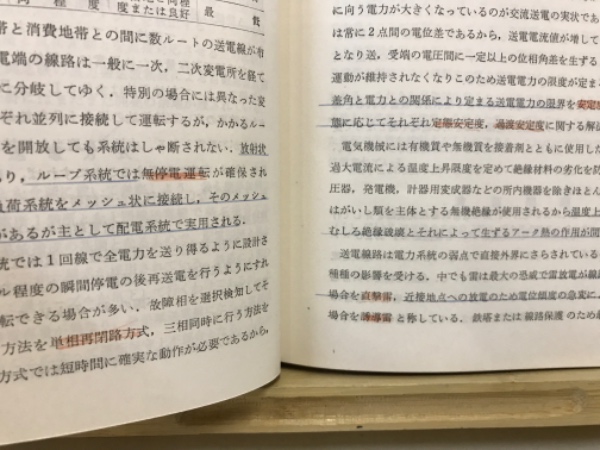 同 程 度
度または良好
最 低
帯と消費地帯との間に数ルートの送電線が有
電端の線路は一般に一次，二次変電所を経て
に分岐してゆく．特別の場合には異なった変
ぞれ並列に接続して運転するが，かかるルー
を開放しても系統はしゃ断されない．放射状
あり，ループ系統では無停電運転が確保され
負荷系統をメッシュ状に接続し，そのメッシュ
があるが主として配電系統で実用される．
統では1回線で全電力を送り得るように設計さ
ル程度の瞬間停電の後再送電を行うようにすれ
転できる場合が多い．故障相を選択検知してそ
方法を単相再閉路方式，三相同時に行う方法を
方式では短時間に確実な動作が必要であるから，
に向う電力が大きくなっているのが交流送電の実状であ
は常に2点間の電位差であるから，送電電流値が増して
となり送，受端の電圧間に一定以上の位相角差を生ずる
運動が維持されなくなりこのため送電電力の限度が定ま
差角と電力との関係により定まる送電電力の限界を安定
態に応じてそれぞれ定態安定度，過渡安定度に関する解
電気機械には有機質や無機質を接着剤とともに使用した
過大電流による温度上昇限度を定めて絶縁材料の劣化を防
圧器，発電機，計器用変成器などの所内機器を除きほとん
はがいし類を主体とする無機絶縁が使用されるから温度上
むしろ絶縁破壊とそれによって生ずるアーク熱の作用が問
送電線路は電力系統の弱点で直接外界にさらされている
種種の影響を受ける．中でも雷は最大の恐威で雷放電が線
場合を直撃雷，近接地点への放電のため電位傾度の急変に
場合を誘導雷と称している．鉄塔または線路保護のため